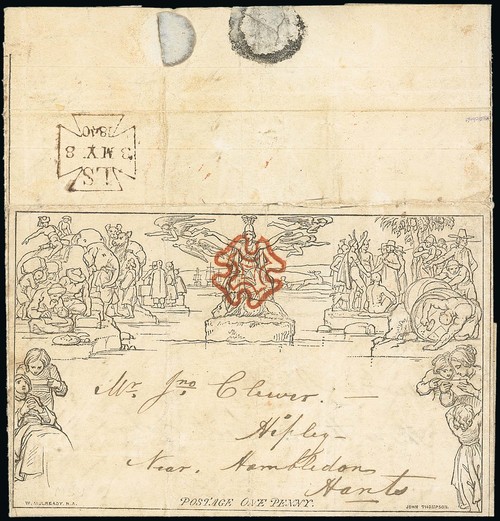 1840
8 MY 8
LS
Mr. Jno Clewer.
Hipley
Near. Hambledon
Hants
W. MULREADY. R.A.
POSTAGE ONE PENNY.
JOHN THOMPSON.